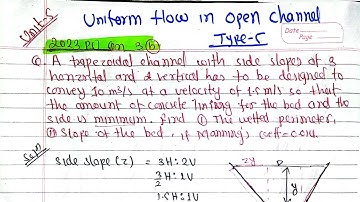 Unit-5
Uniform flow in open channel
TYPE-5
Date
Page
2023 PU Qn 3(b)
Q A trapezoidal channel with side slopes of 3
horizontal and 2 vertical has to be designed to
convey 10 m³/s at a velocity of 1.5 m/s so that
the amount of concrete lining for the bed and the
side is minimum. find ① The wetted perimeter,
② slope of the bed, if Manning's coeff = 0.014
Solⁿ
side slope (z) = 3H:2V
3/2 H:1V
1.5H:1V
zy
y